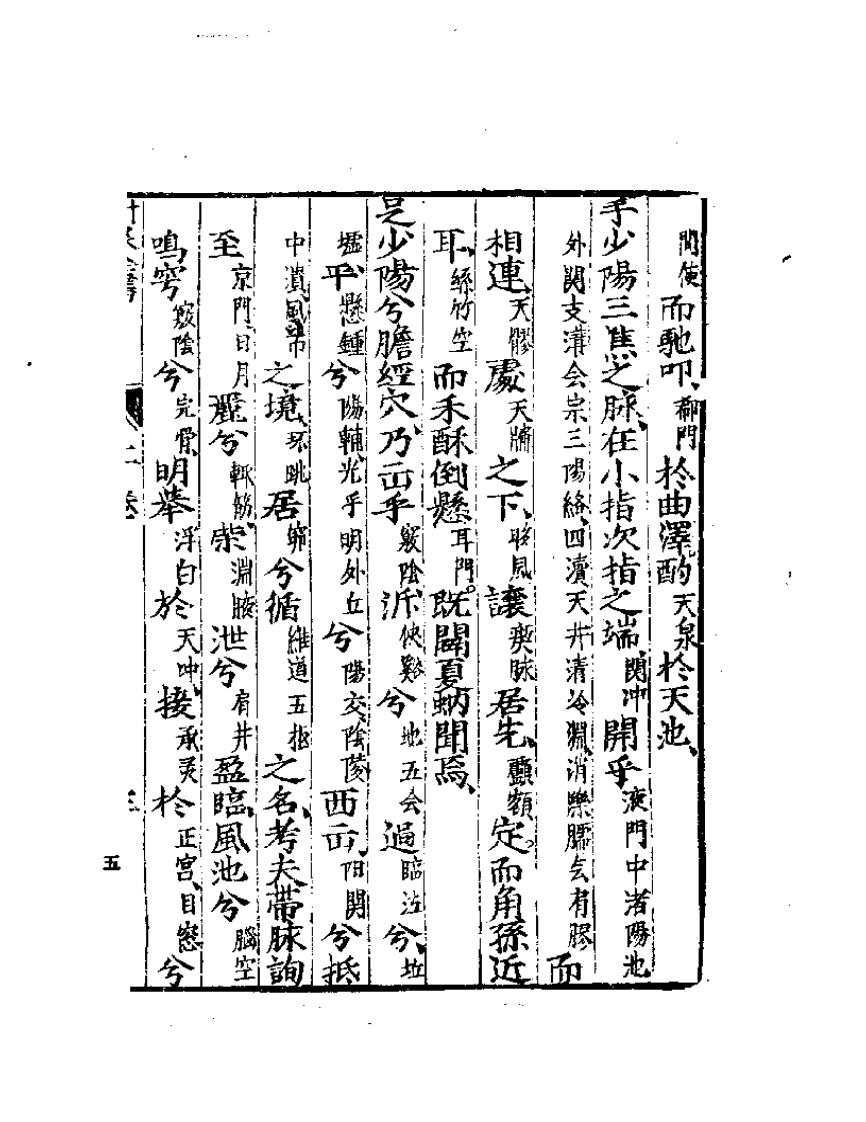 間使而馳叩郄門於曲澤酌天泉於天池
手少陽三焦之脉在小指次指之端関冲開乎液門中渚陽池
外関支溝会宗三陽絡四瀆天井清冷淵消樂臑会肩髎而
相連天髎處天牖之下翳風讓瘈脉居先顱顖定而角孫近
耳絲竹空而禾髎倒懸耳門既闢夏蚋聞焉
足少陽兮膽經穴乃出乎竅陰泝俠谿兮地五会過臨泣兮坵
墟平懸鍾兮陽輔光乎明外丘兮陽交陰陵西出阳関兮抵
中瀆風市之境环跳居髎兮循維道五枢之名考夫帶脉詢
至京門日月麗兮輒筋崇淵腋泄兮肩井盈臨風池兮腦空
鳴窍竅陰兮完骨明举浮白於天冲接承灵於正宫目窓兮
二卷
五